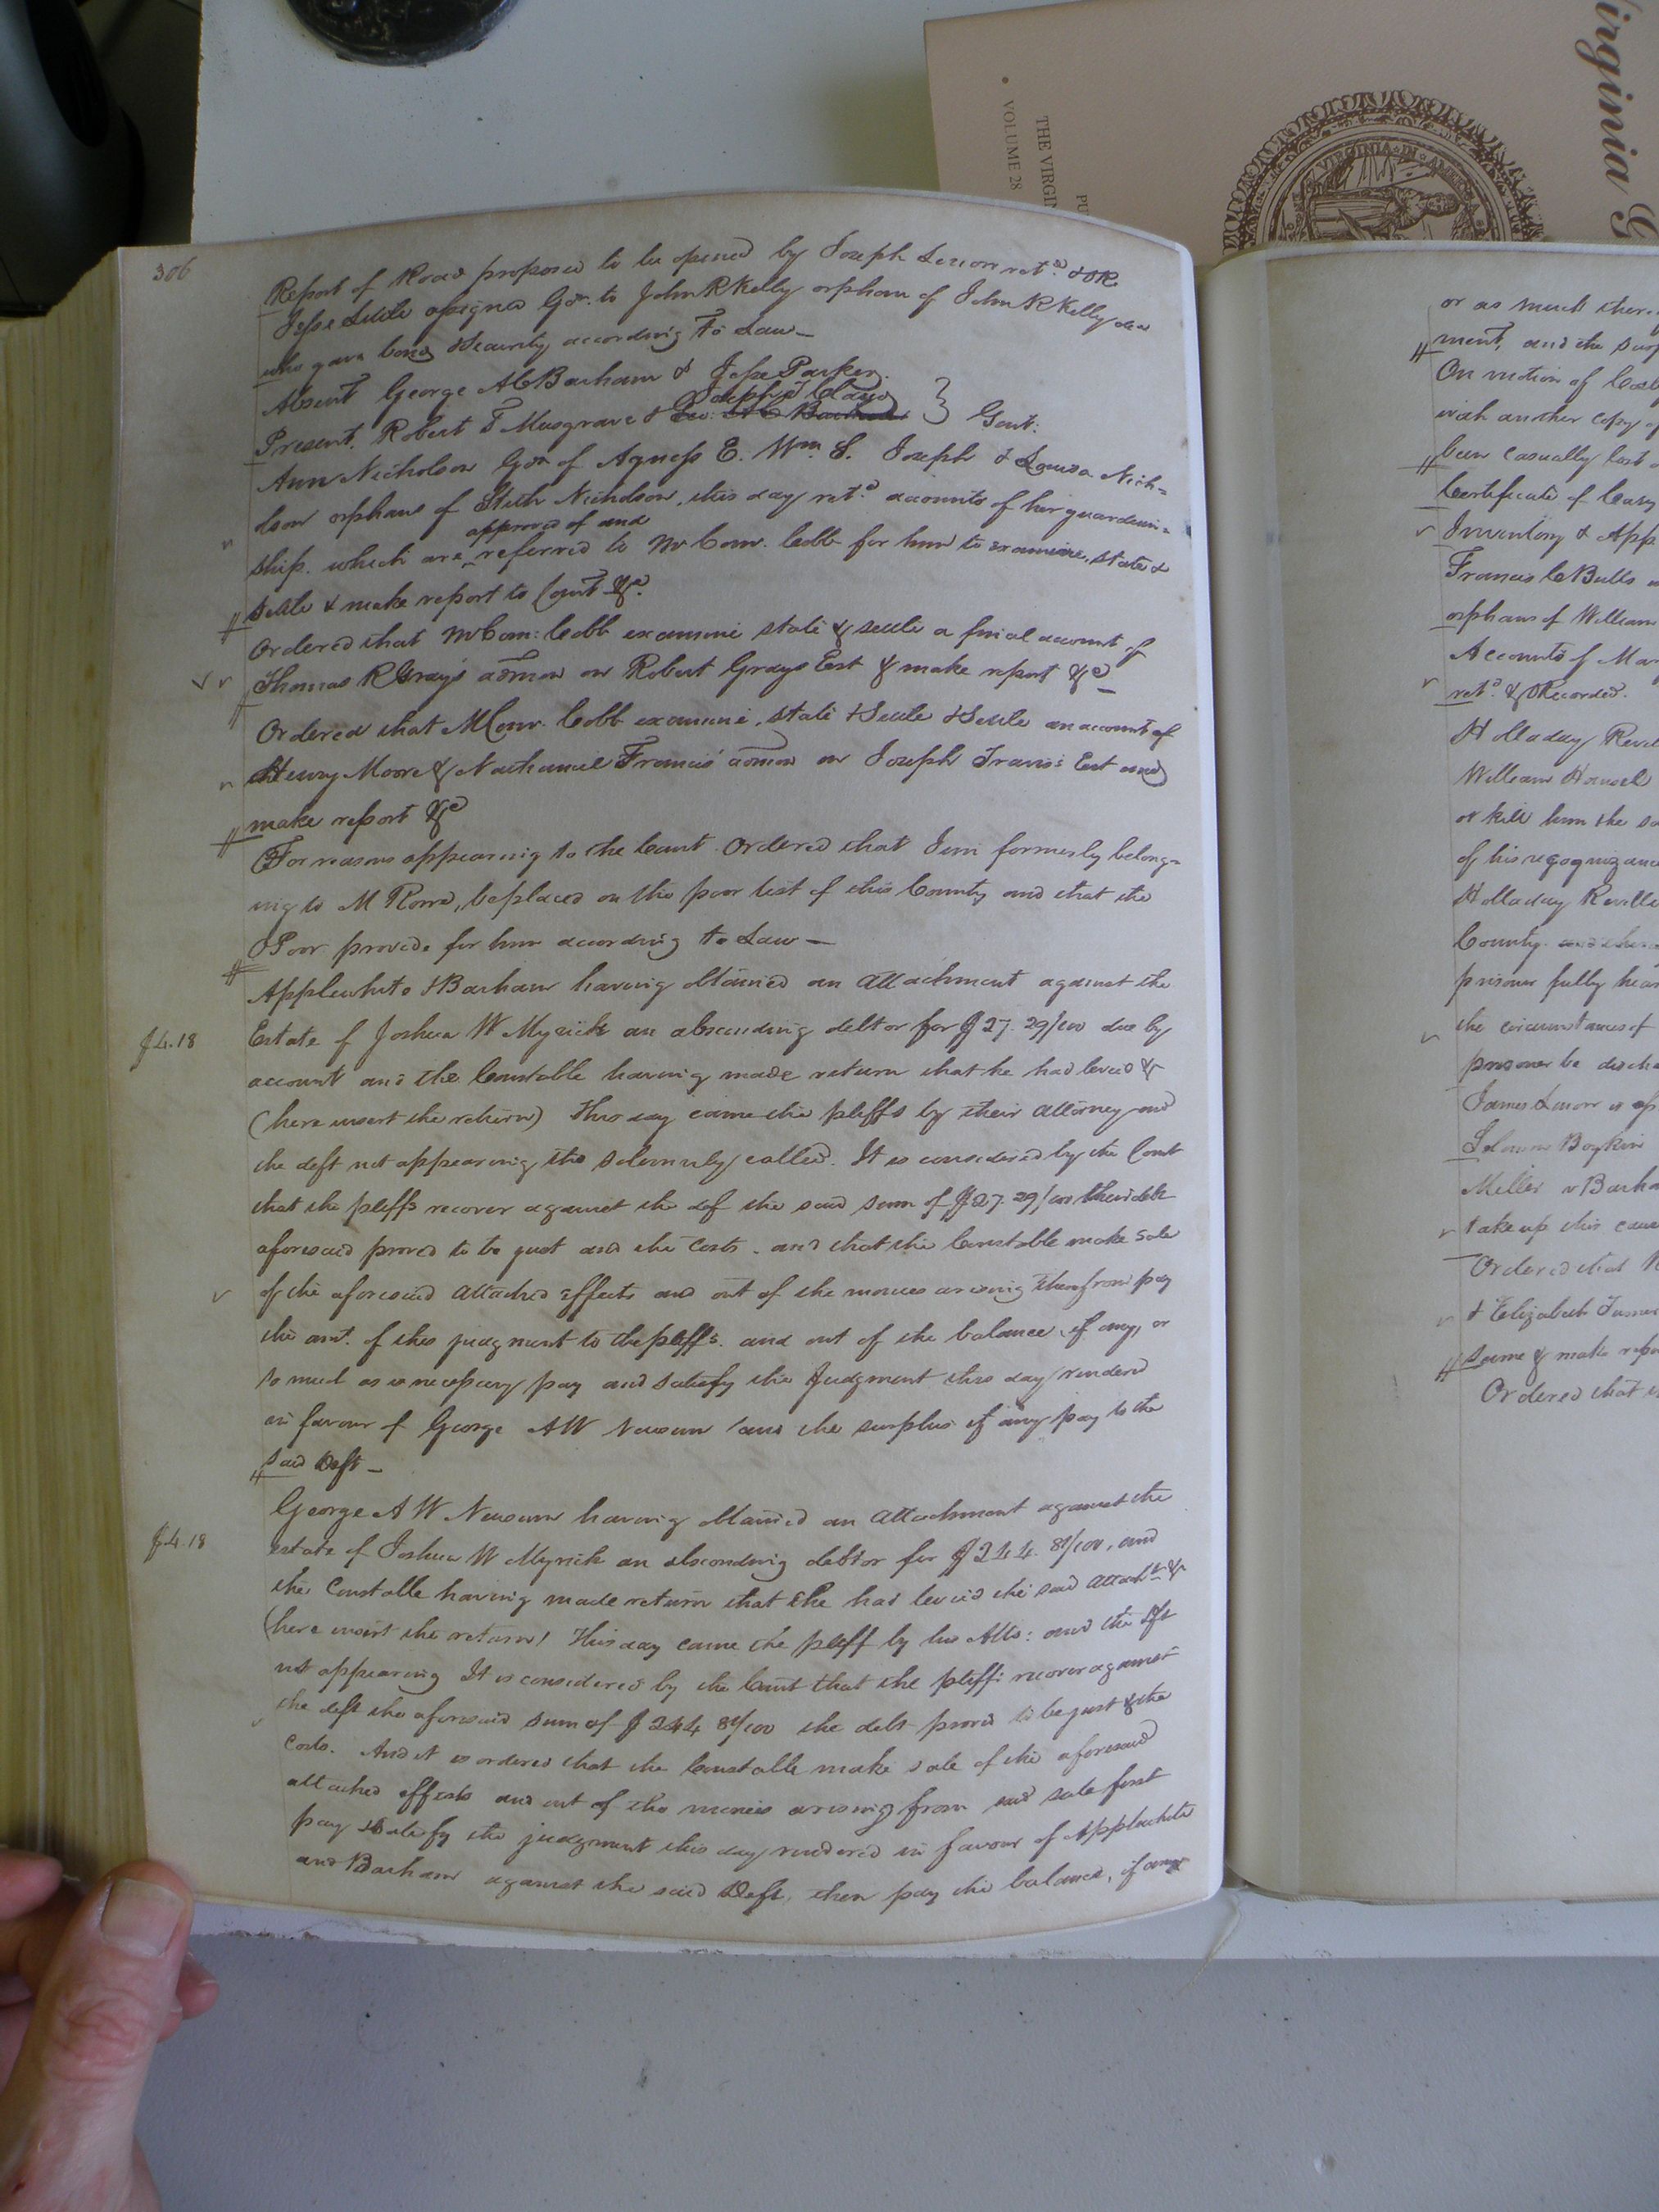 Virginia G
THE VIRGIN
VOLUME 28
PU
VIRGINIA IN AMER
306
Report of Road proposed to be opened by Joseph Lenow retd. & OR
Jesse Little assigned Gdn. to John R Kelly orphan of John R Kelly decd
who gave bond & Security according To Law—
Absent George A C Barham & Jesse Parker
Joseph T Claud
Present. Robert T Musgrave & Geo: A C Barham } Gent:
Ann Nicholson Gdn of Agness E. Wm. S. Joseph & Louisa Nich-
lson orphans of Stith Nicholson, this day retd. accounts of her guardian-
approved of and
ship. which are referred to Mr Com. Cobb for him to examine, state &
settle & make report to Court &c.
Ordered that Mr Com: Cobb examine state & settle a final account of
Thomas R Gray's admon on Robert Grays Est & make report &c—
Ordered that M Com. Cobb examine, state & Settle & Settle an account of
Henry Moore & Nathaniel Francis' admon on Joseph Travis's Est and
make report &c
For reasons appearing to the Court. Ordered that Jim formerly belong-
ing to M Rowe, be placed on the poor list of this County and that the
O Poor provide for him according to Law—
Applewhite & Barham having obtained an Attachment against the
$4.18
Estate of Joshua W Myrick an absconding debtor for $27. 29/100 due by
account and the Constable having made return that he had levied &
(here insert the return) This day came the pltffs by their Attorney and
the deft not appearing tho solemnly called. It is considered by the Court
that the pltffs recover against the def the said sum of $27. 29/100 their debt
aforesaid proved to be just and the Costs. and that the Constable make sale
of the aforesaid attached effects and out of the monies arising therefrom pay
the amt. of this judgment to the pltffs. and out of the balance, if any, or
so much as is necessary pay and satisfy the Judgment this day rendered
in favour of George A W Newsum and the surplus if any pay to the
said Deft—
George A W Newsum having obtained an Attachment against the
$4.18
estate of Joshua W Myrick an absconding debtor for $244. 81/100, and
the Constable having made return that he has levied the said attacht &
(here insert the return) This day came the pltff by his Atto: and the dft
not appearing It is considered by the Court that the pltff recover against
the deft the aforesaid sum of $244 81/100 the debt proved to be just & the
Costs. And it is ordered that the Constable make sale of the aforesaid
attached effects and out of the monies arising from said sale first
pay & satisfy the judgment this day rendered in favour of Applewhite
and Barham against the said Deft, then pay the balance, if any
or as much there
ment, and the surp
On motion of
with another copy of
been casually lost
Certificate of
Inventory & App
Francis C Butts
orphans of William
Accounts of Mar
retd. & ORecorded.
Holladay Revel
William Howell
or kill him the sa
of his recognizance
Holladay Revelle
County
prisoner fully hear
the circumstances of
prisoner be discha
James Lenow is ap
Boykin
Miller v Barha
take up this cause
Ordered that
& Elizabeth Turner
same & make repo
Ordered that